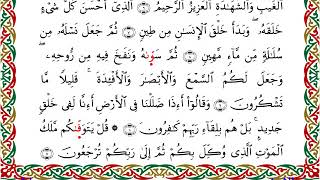 ٱلْغَيْبِ وَٱلشَّهَٰدَةِ ٱلْعَزِيزُ ٱلرَّحِيمُ ۝ ٱلَّذِىٓ أَحْسَنَ كُلَّ شَىْءٍ
خَلَقَهُۥ ۖ وَبَدَأَ خَلْقَ ٱلْإِنسَٰنِ مِن طِينٍ ۝ ثُمَّ جَعَلَ نَسْلَهُۥ مِن
سُلَٰلَةٍ مِّن مَّآءٍ مَّهِينٍ ۝ ثُمَّ سَوَّىٰهُ وَنَفَخَ فِيهِ مِن رُّوحِهِۦ ۖ
وَجَعَلَ لَكُمُ ٱلسَّمْعَ وَٱلْأَبْصَٰرَ وَٱلْأَفْـِٔدَةَ ۚ قَلِيلًا مَّا
تَشْكُرُونَ ۝ وَقَالُوٓا۟ أَءِذَا ضَلَلْنَا فِى ٱلْأَرْضِ أَءِنَّا لَفِى خَلْقٍ
جَدِيدٍۭ ۚ بَلْ هُم بِلِقَآءِ رَبِّهِمْ كَٰفِرُونَ ۝ قُلْ يَتَوَفَّىٰكُم مَّلَكُ
ٱلْمَوْتِ ٱلَّذِى وُكِّلَ بِكُمْ ثُمَّ إِلَىٰ رَبِّكُمْ تُرْجَعُونَ ۝